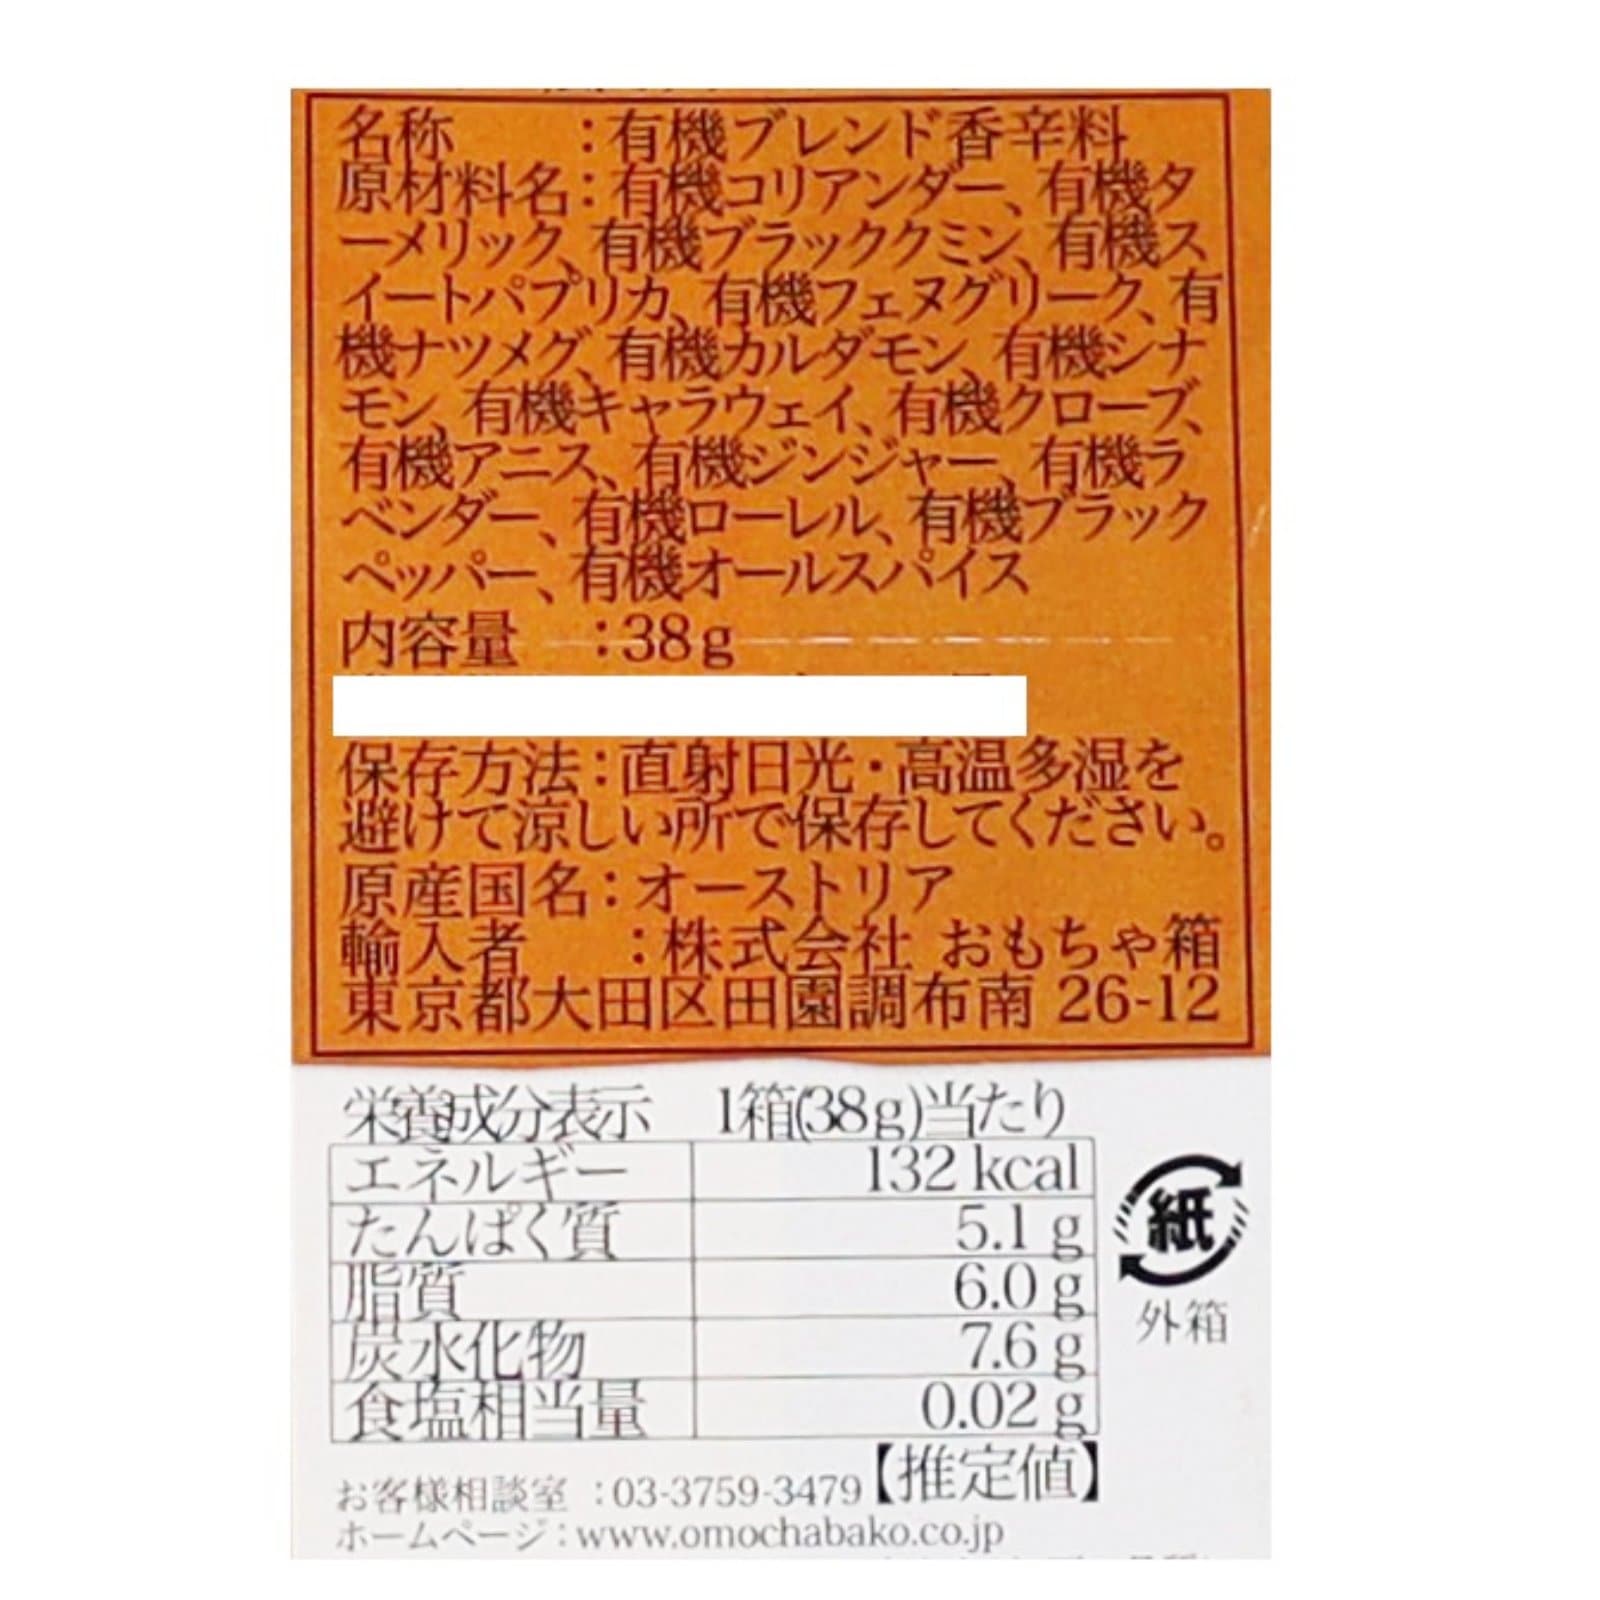 名称　　：有機ブレンド香辛料
原材料名：有機コリアンダー、有機タ
ーメリック、有機ブラッククミン、有機ス
イートパプリカ、有機フェヌグリーク、有
機ナツメグ、有機カルダモン、有機シナ
モン、有機キャラウェイ、有機クローブ、
有機アニス、有機ジンジャー、有機ラ
ベンダー、有機ローレル、有機ブラック
ペッパー、有機オールスパイス
内容量　：38g
保存方法：直射日光・高温多湿を
避けて涼しい所で保存してください。
原産国名：オーストリア
輸入者　：株式会社 おもちゃ箱
東京都大田区田園調布南 26-12
栄養成分表示　1箱(38g)当たり
エネルギー 132 kcal
たんぱく質 5.1 g
脂質 6.0 g
炭水化物 7.6 g
食塩相当量 0.02 g
【推定値】
紙
外箱
お客様相談室 ：03-3759-3479
ホームページ：www.omochabako.co.jp